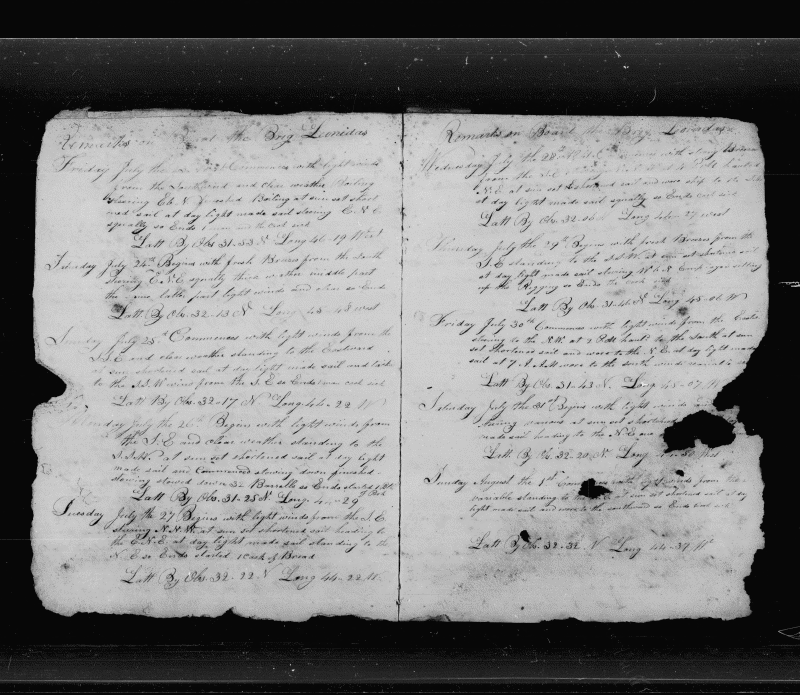 Remarks on the Brig Leonidas
Friday July the Commences with light winds
from the Southward and clear weather Boiling
stearing E b N finished Boiling at sun set short
ned sail at day light made sail stearing E N E
squally so Ends
Latt By Obs 31-33 N Long 46-19 West
Saturday July 24th Begins with fresh Breses from the South
stearing E.N.E squally thick weather middle part
the same latter part light winds and clear so Ends
Latt By Obs 32-13 N Long 45-43 west
Sunday July 25th Commences with light winds from the
S.E and clear weather standing to the Eastward
at sun shortened sail at day light made sail and tackt
to the S.S.W wins from the S.E so Ends
Latt By Obs 32-17 N Long 44-22 W
July the 26th Begins with light winds from
the S.E and clear weather standing to the
S.S.W. at sun set shortened sail at day light
made sail and Commenced stowing down finished
stowing stowed down 32 Barrells so Ends
Latt By Obs 31-25 N Long 4 -29
Tuesday July the 27 Begins with light winds from the S.E.
stearing N.N.W. at sun set shortened sail heading to
the E.N.E at day light made sail standing to the
N.E so Ends started 1 Cask of Bread
Latt By Obs 32-22 N Long 44-22 W.
Remarks on Board the Brig Leonidas
Wednesday July the 28th with strong
from the S.E
N.E at sun set shortened sail and
at day light made sail squally so Ends
Latt By Obs 32-06 Long 44-27 west
Thursday July the 29th Begins with fresh Breses from the
S.E standing to the S.S.W at sun set shortened sail
at day light made sail stearing
up the Rigging so Ends
Latt By Obs 31-41 N Long 45-06 W
Friday July 30th Commences with light winds from the East
stearing to the N.W. at 7 P.M to the South at sun
set shortened sail and wore to the N.E at day light made
sail at 7 A.M wore to the south
Latt By Obs 31-43 N. Long 45-07 W
Saturday July the 31st Begins with light winds and
stearing various at sun set shortened
made sail heading to the N.E
Latt By Obs 32-20 N. Long West
Sunday August the 1st with light winds from the
variable standing to at sun set shortened sail at day
light made sail and wore to the southward so Ends
Latt By Obs 32-32 N Long 44-39 W